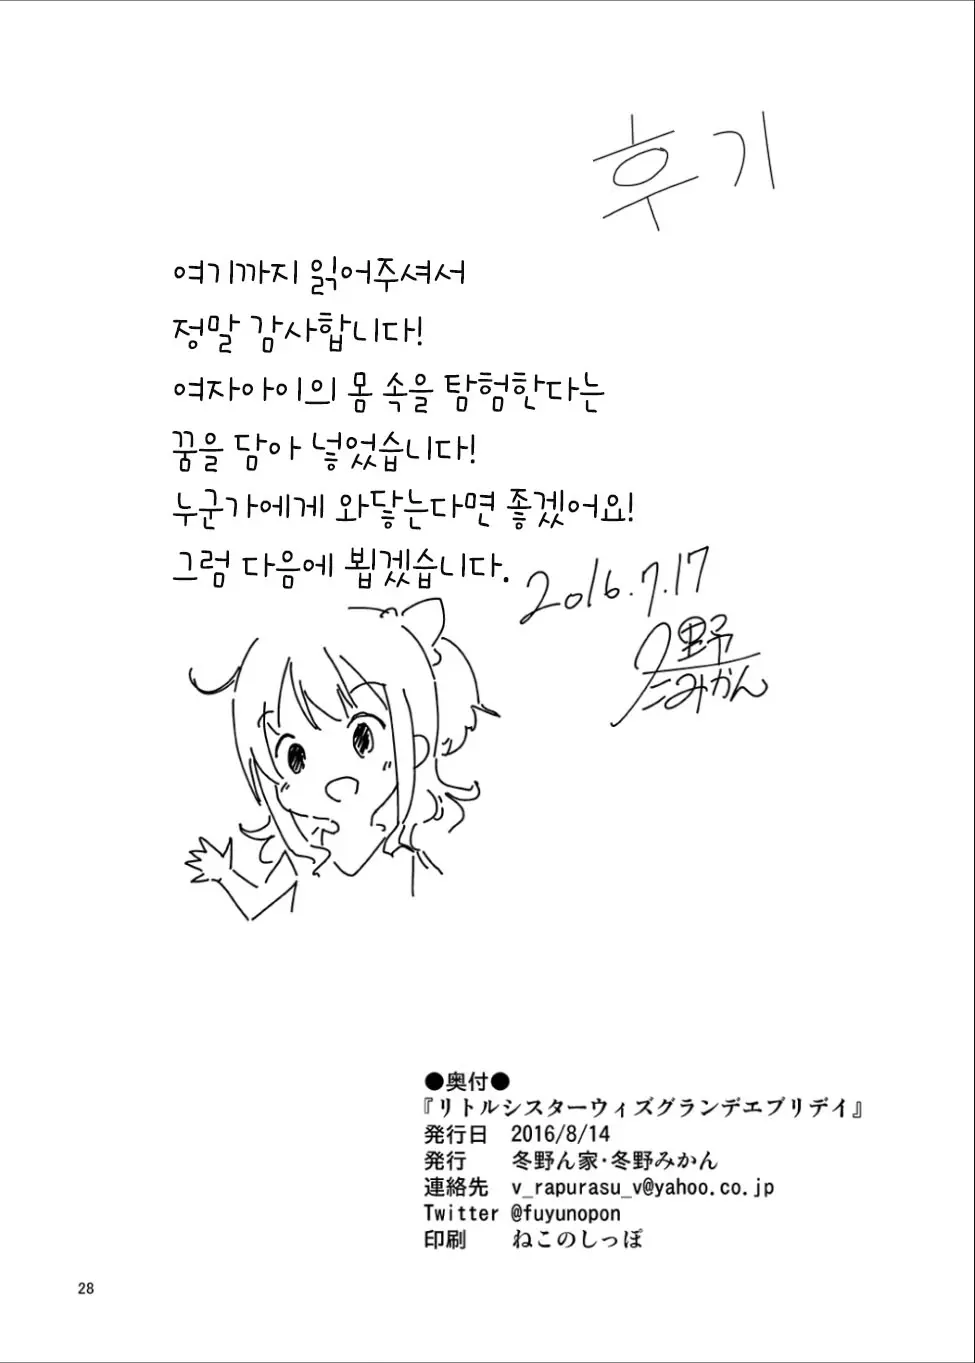 후기
여기까지 읽어주셔서
정말 감사합니다!
여자아이의 몸 속을 탐험한다는
꿈을 담아 넣었습니다!
누군가에게 와닿는다면 좋겠어요!
그럼 다음에 뵙겠습니다.
2016.7.17
冬野
みかん
●奥付●
『リトルシスターウィズグランデエブリデイ』
発行日 2016/8/14
発行 冬野ん家・冬野みかん
連絡先 v_rapurasu_v@yahoo.co.jp
Twitter @fuyunopon
印刷 ねこのしっぽ
28